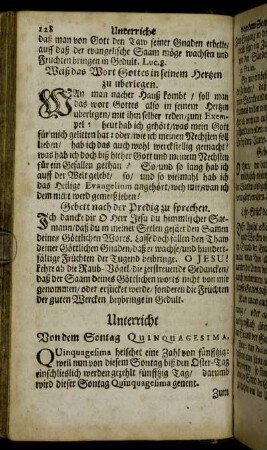 128 Unterricht
daß man von Gott den Taw seiner Gnaden erbette,
auff daß der evangelische Saam möge wachsen und
Fruchten bringen in Gedult. Luc. 8.
Weiß das Wort Gottes in seinem Hertzen
zu uberlegen.
WAn man nacher Hauß kombt / soll man
das wort Gottes also in seinem Hertzen
uberlegen, mit ihm selber reden / zum Exem-
pel: heut hab ich gehört / was mein Gott
für mich gelitten hat: oder, wie ich meinen Nechsten soll
lieben / hab ich das auch wohl werckstellig gemacht /
was hab ich doch biß hieher Gott und meinem Nechsten
für ein Gefallen gethan / So / und so lang hab ich
auff der Welt gelebt / so / und so vielmahl hab ich
das Heilige Evangelium angehört / wo ich / wan ich
dem nicht werd gemeß leben /
Gebett nach der Predig zu sprechen.
Ich dancke dir O Herr Jesu du himmlischer Sae-
mann / daß du in meiner Seelen gesäet den Samen
deines Göttlichen Worts. Lasse doch fallen den Thau
deiner Göttlichen Gnaden / daß er wachse / und hundert-
fältige Früchten der Tugend beybringe. O JESU!
kehre ab die Raub-Vögel, die zerstreuende Gedancken /
daß der Saam deines Göttlichen worts nicht von mir
genommen / oder ersticket werde, sonderen die Früchten
der guten Wercken beybringe in Gedult.
Unterricht
Von dem Sontag QUINQUAGESIMA.
QUinquagesima heischet eine Zahl von fünfftzig:
weil nun von diesem Sontag biß den Oster-Tag
einschließlich werden gezehlt fünfftzig Tag / darumb
wird dieser Sontag Quinquagesima genent.
Zum